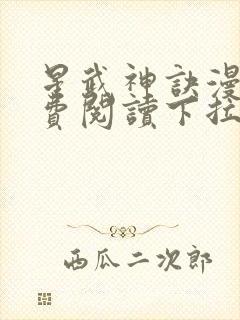 星武神訣漫
費閱讀下拉
西瓜二次郎